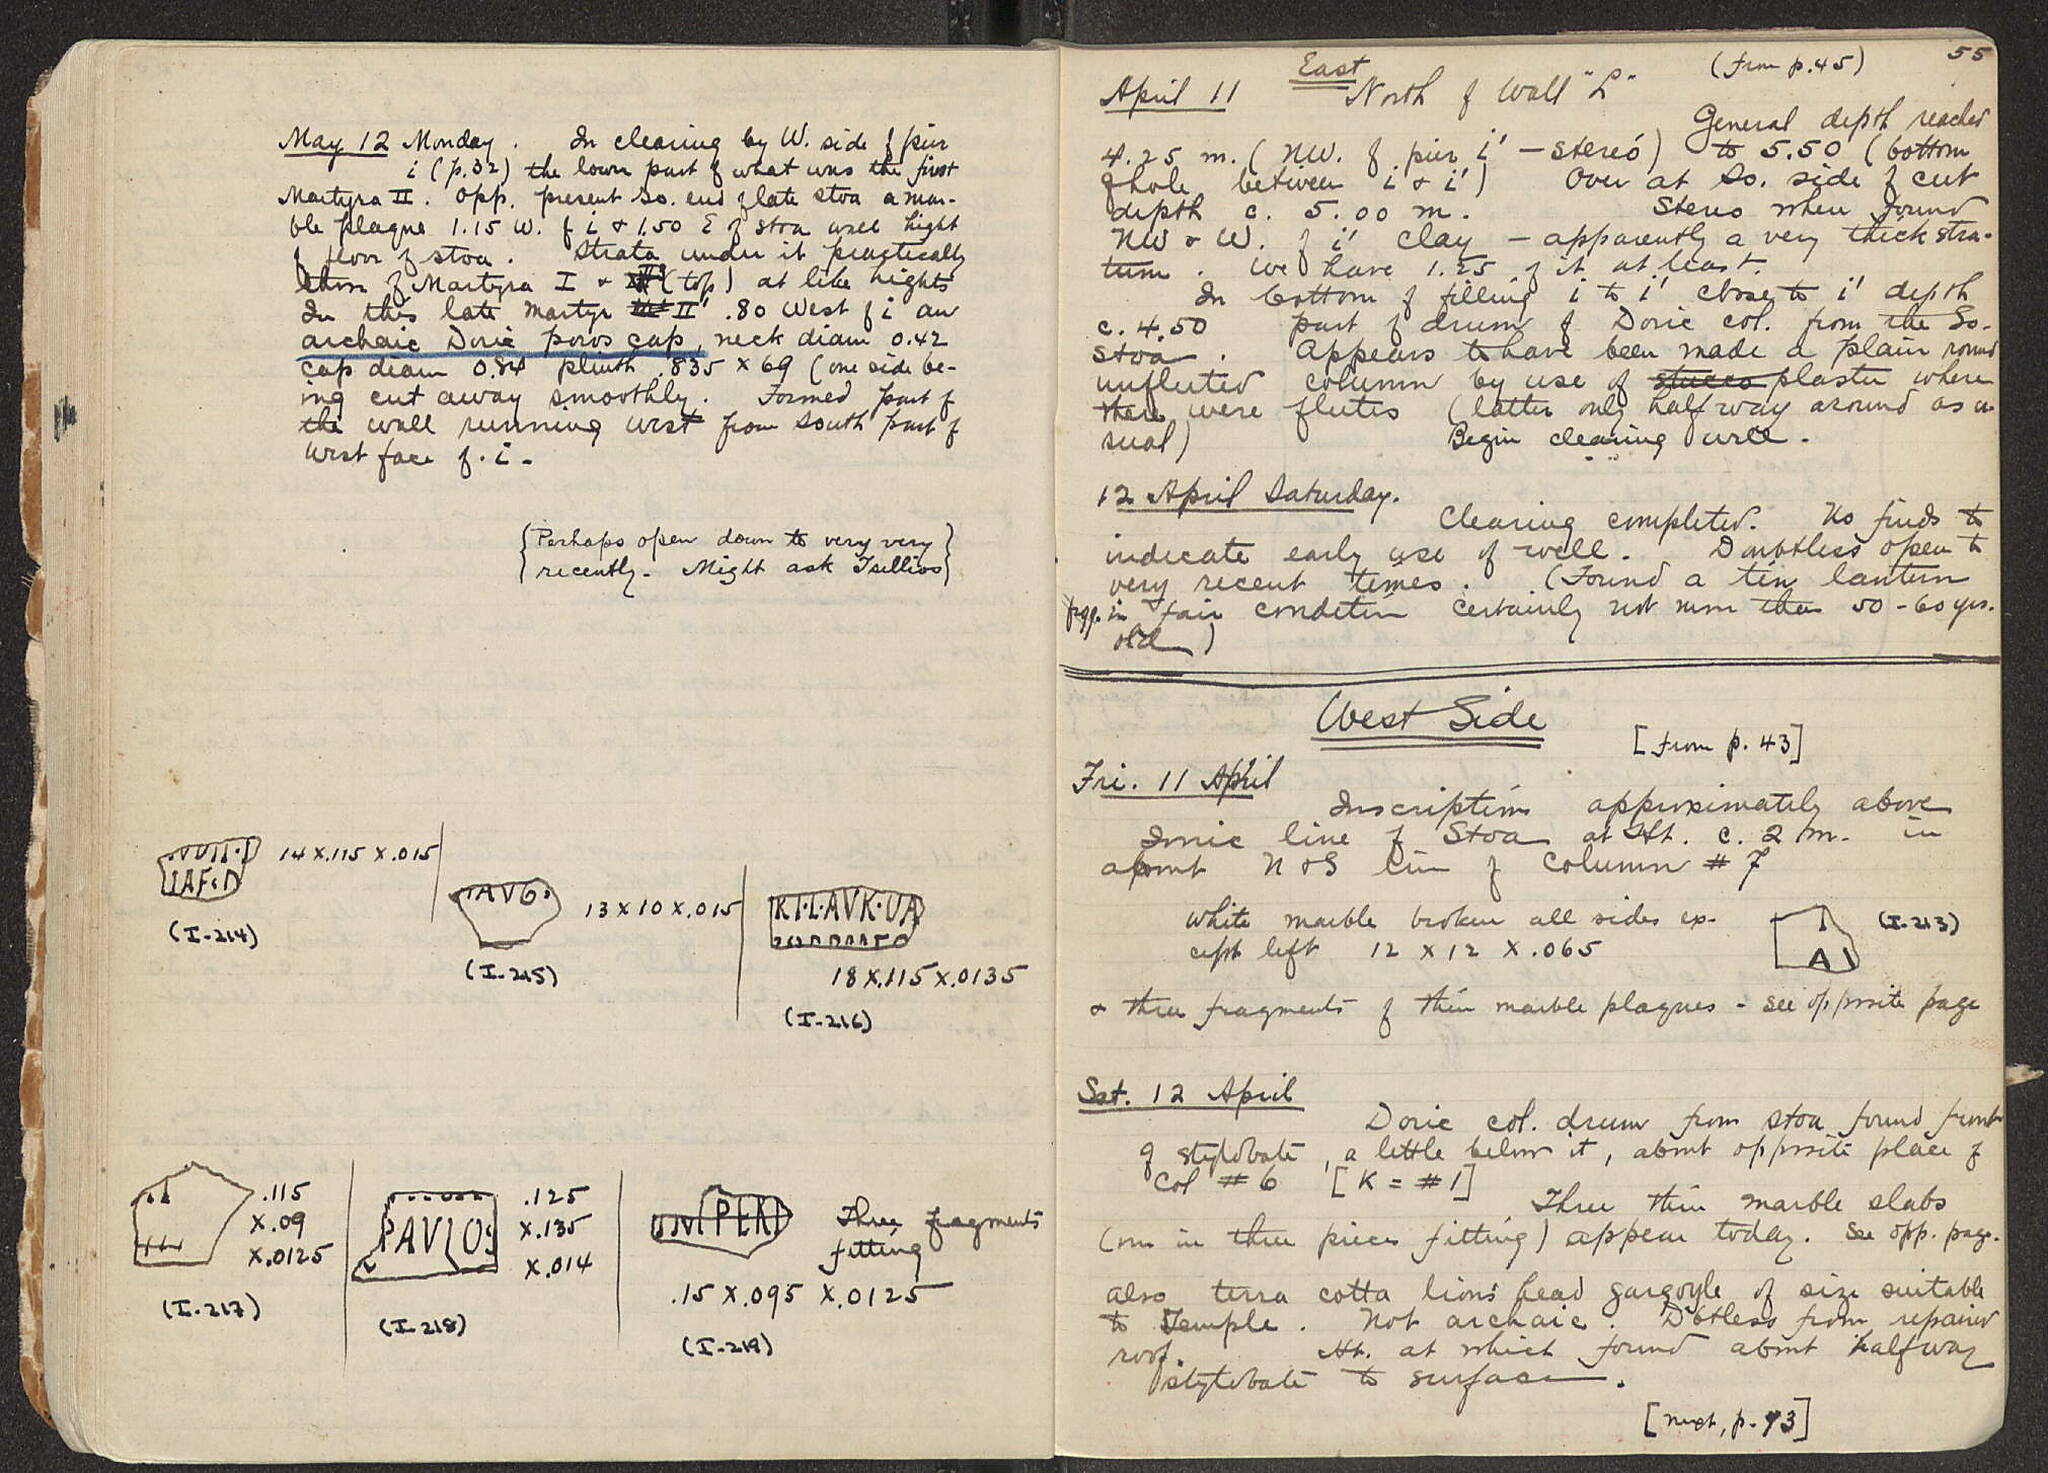 May 12 Monday. In clearing by W. side of pier
i (p.32) the lower part of what was the first
Martyra II. Opp. present So. end of late stoa a mar-
ble plaque 1.15 W. of i & 1.50 E of stoa wall hight
of floor of stoa. Strata under it practically
those of Martyra I & II (top) at like hights
In this late martyr II' .80 West of i an
archaic Doric poros cap, neck diam 0.42
cap diam 0.84 plinth .835 x 69 (one side be-
ing cut away smoothly. Formed part of
the wall running west from south part of
west face of i -
{Perhaps open down to very very
recently. Might ask Tsellios}
IAF·D
14 x .115 x .015
(I-214)
AVG
13 x 10 x .015
(I-215)
RI·L·AVK·VA
18 x .115 x .0135
(I-216)
.115
x .09
x .0125
(I-217)
PAVLOS
.125
x .135
x .014
(I-218)
PERI
Three fragments
fitting
.15 x .095 x .0125
(I-219)
55
East
(From p. 45)
April 11 North of Wall "L"
General depth reached
4.25 m. (NW. of pier i' - stereó) to 5.50 (bottom
of hole between i & i') Over at So. side of cut
depth c. 5.00 m. Stereo when found
NW & W. of i' clay - apparently a very thick stra-
tum. We have 1.25 of it at least.
In bottom of filling i to i' close to i' depth
c. 4.50 part of drum of Doric col. from the So.
Stoa. Appears to have been made a plain round
unfluted column by use of stucco plaster where
there were flutes (latter only halfway around as u-
sual) Begin clearing well.
12 April Saturday.
Clearing completed. No finds to
indicate early use of well. Doubtless open to
very recent times. (Found a tin lantern
frgg. in fair condition certainly not more than 50-60 yrs.
old)
West Side
[From p. 43]
Fri. 11 April
Inscription approximately above
Ionic line of Stoa at Ht. c. 2 m. in
about N & S line of Column #7
White marble broken all sides ex-
cept left 12 x 12 x .065
A
(I-213)
& three fragments of thin marble plaques - see opposite page
Sat. 12 April
Doric col. drum from stoa found front
of stylobate, a little below it, about opposite place of
Col #6 [K = #1]
Three thin marble slabs
(one in three pieces fitting) appear today. See opp. page.
also terra cotta lion's head gargoyle of size suitable
to Temple. Not archaic. Dbtless from repaired
roof. Ht. at which found about halfway
stylobate to surface.
[next, p. 73]